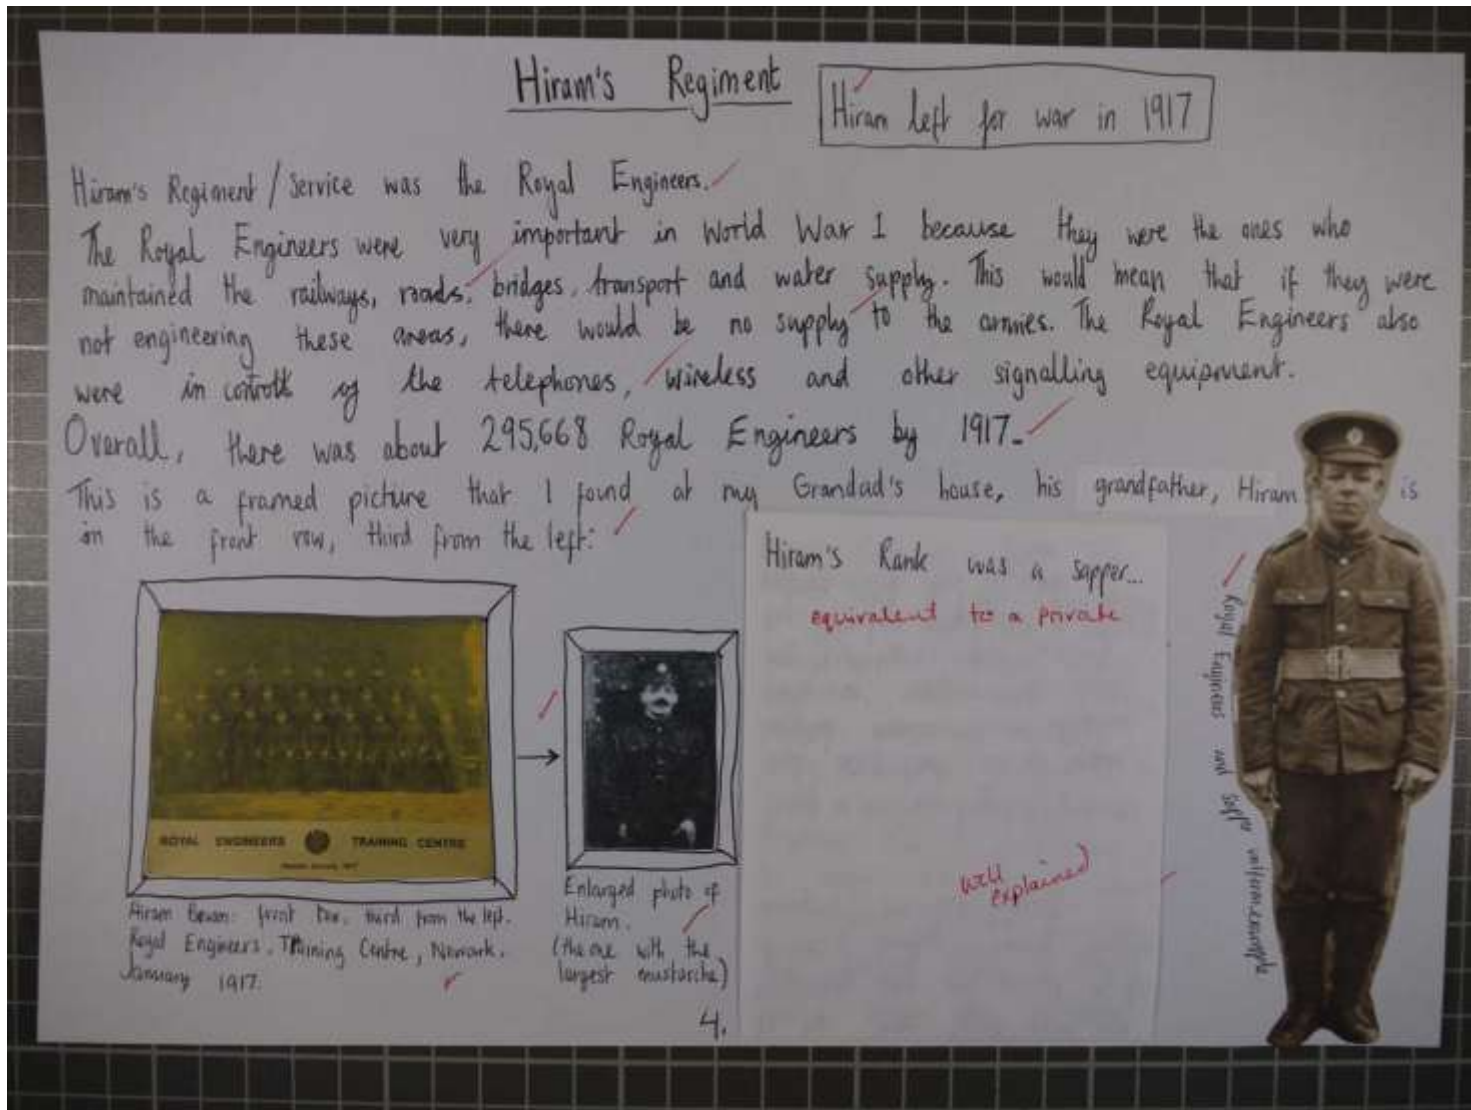 Hiram's Regiment
Hiram left for war in 1917
Hiram's Regiment / Service was the Royal Engineers.
The Royal Engineers were very important in World War 1 because they were the ones who
maintained the railways, roads, bridges, transport and water supply. This would mean that if they were
not engineering these areas, there would be no supply to the armies. The Royal Engineers also
were in controll of the telephones, wireless and other signalling equipment.
Overall, there was about 295,668 Royal Engineers by 1917.
This is a framed picture that I found at my Grandad's house, his grandfather, Hiram is
on the front row, third from the left:
Hiram's Rank was a sapper...
equivalent to a private
ROYAL ENGINEERS TRAINING CENTRE
Hiram Bevan: front row, third from the left.
Royal Engineers, Training Centre, Newark.
January 1917.
Enlarged photo of
Hiram.
(the one with the
largest mustarche)
well
explained
Royal Engineers and sapper uniform example
4.